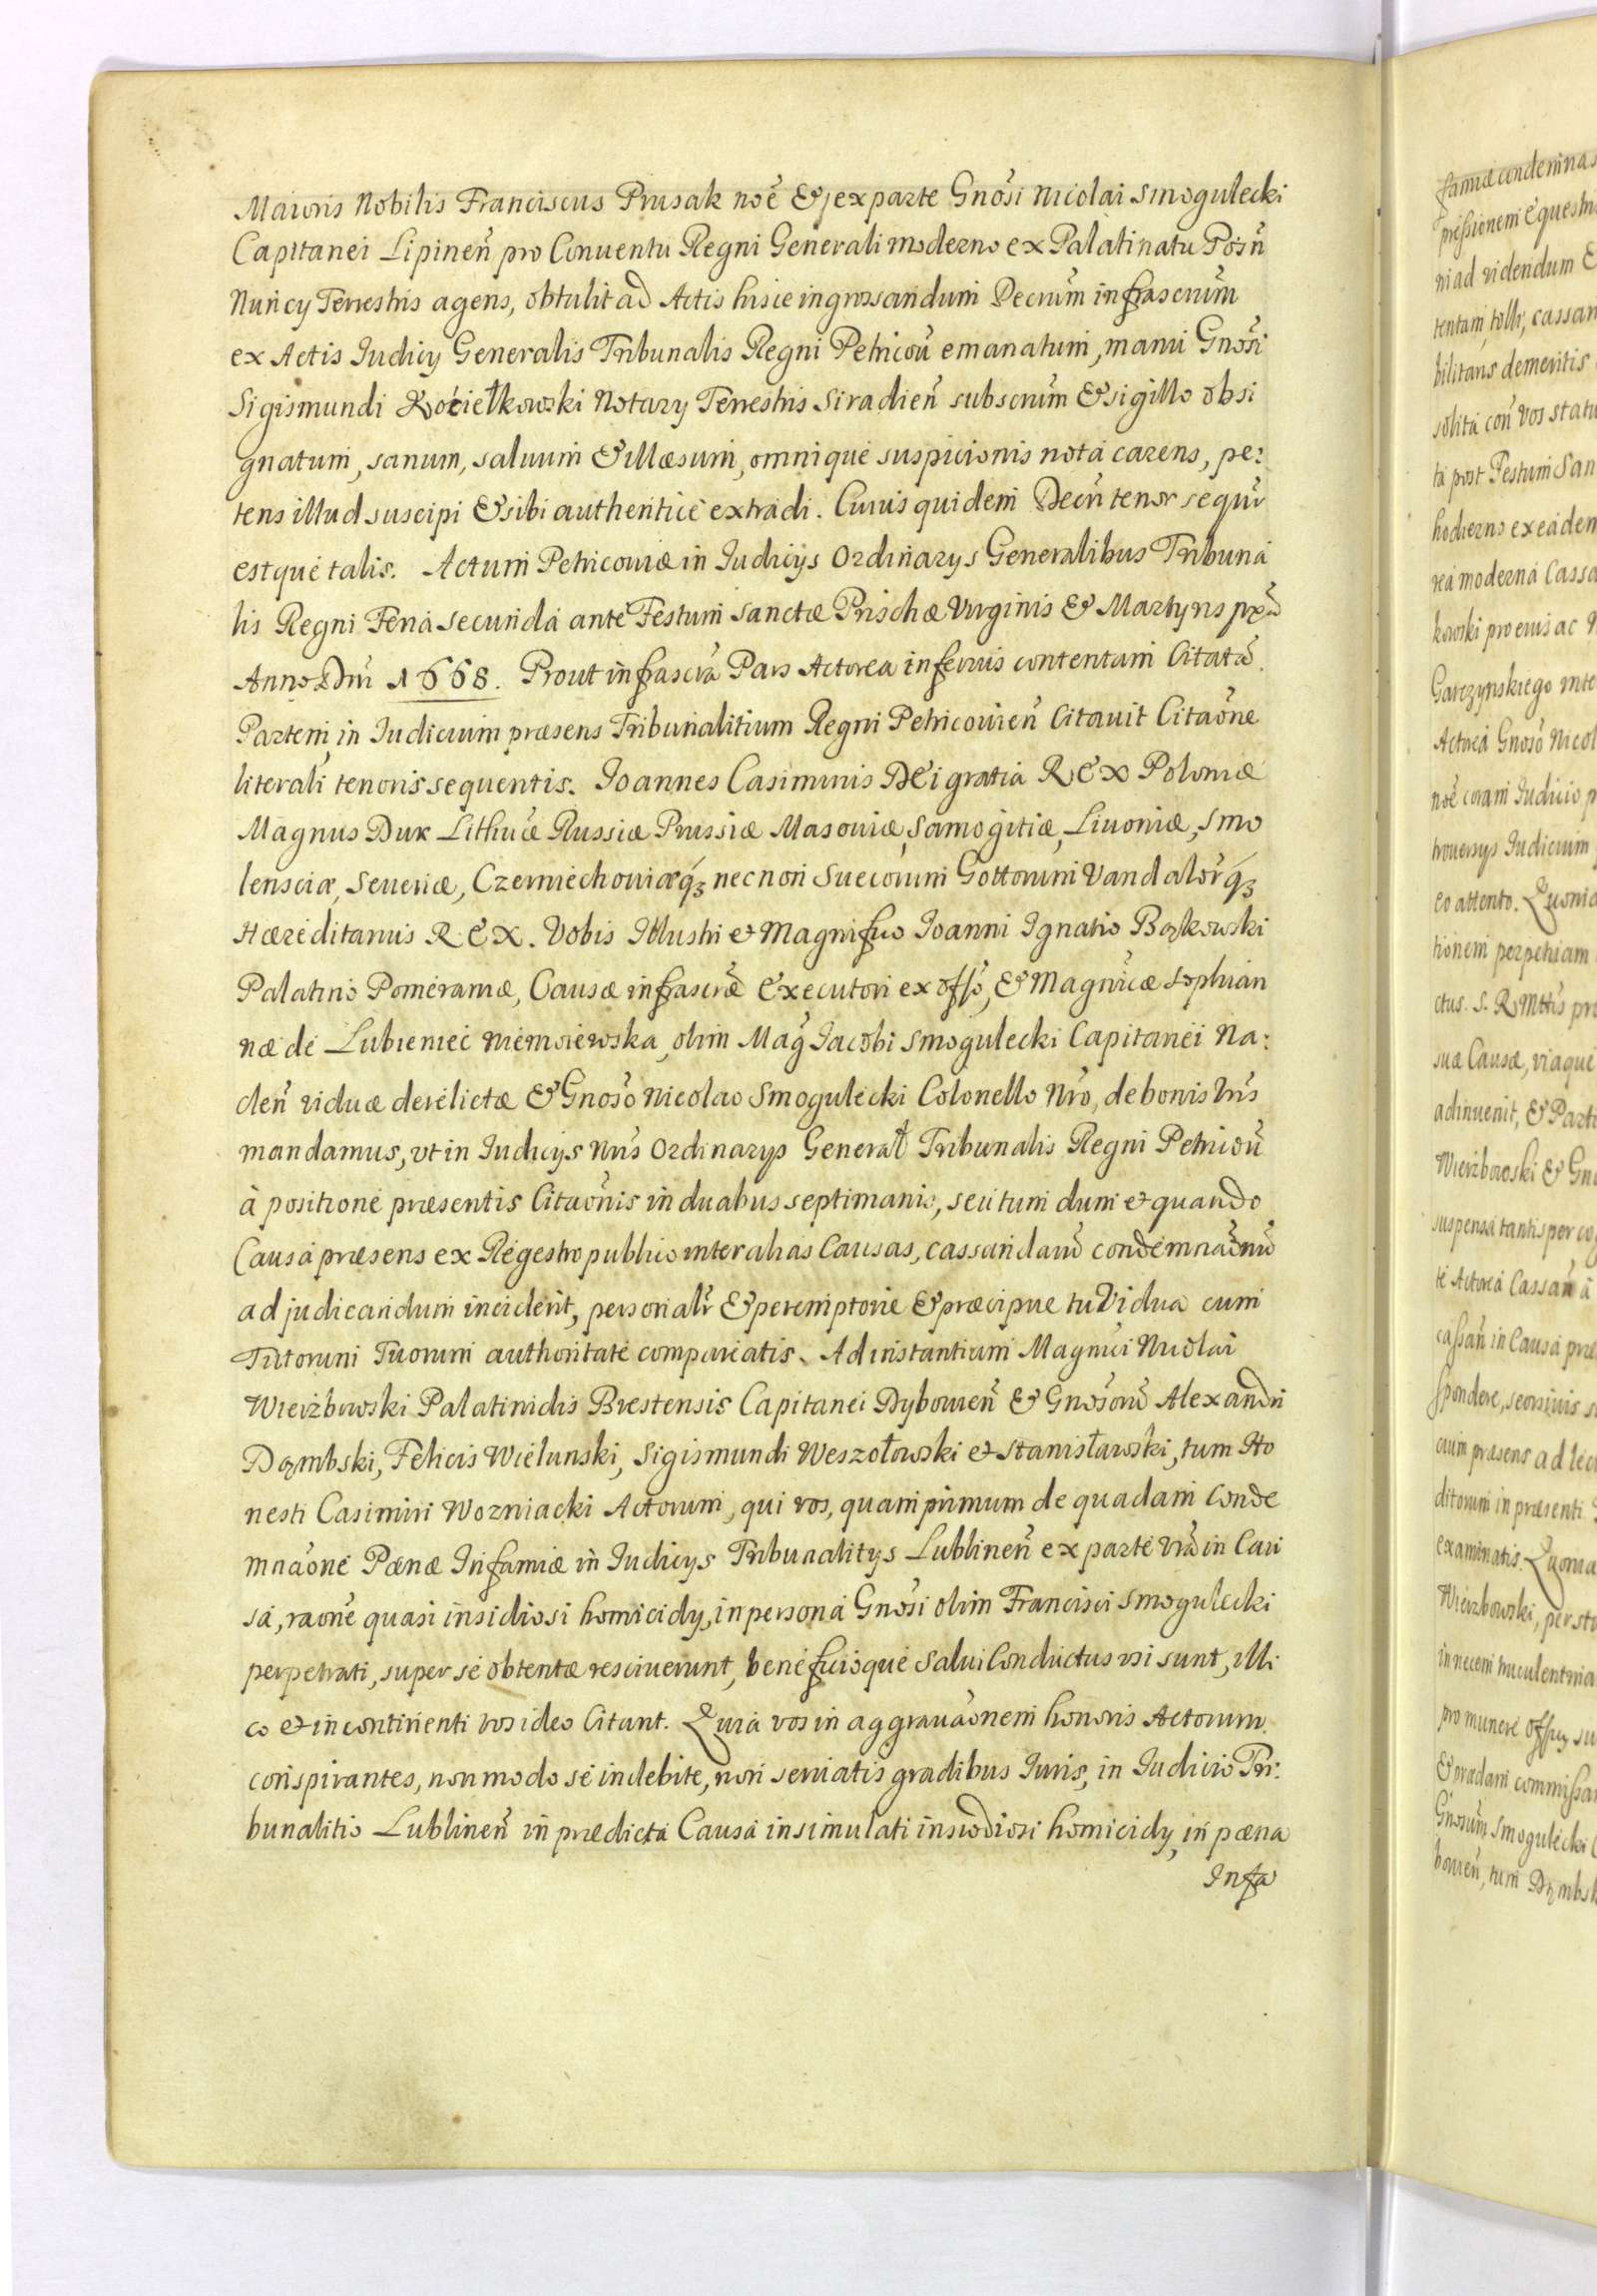 Maioris Nobilis Franciscus Prusak noẽ & ex parte Gnosi Nicolai Smogulecki
Capitanei Lipineñ pro Conuentu Regni Generali moderno ex Palatinatu Posñ
Nuncy Terrestris agens, obtulit ad Actis hisce ingrossandum Decrum infrascrum
ex Actis Iudicy Generalis Tribunalis Regni Petricoũ emanatum, manu Gnosi
Sigismundi Kociełkowski Notary Terrestris Siradieñ subscrum & sigillo obsi
gnatum, sanum, saluum & illæsum, omnique suspicionis nota carens, pe:
tens illud suscipi & sibi authentice extradi. Cuius quidem Decri tenor sequr
estque talis. Actum Petricouiæ in Iudicijs Ordinarys Generalibus Tribuna
lis Regni Feria secunda ante Festum Sanctæ Prischæ Virginis & Martyris pxa
Anno Dni 1668. Prout infrascra Pars Actorea inferius contentam Citatã
Partem in Iudicium præsens Tribunalitium Regni Petricouieñ Citauit Citaõne
literali tenoris sequentis. Ioannes Casimirus DEi gratia REX Poloniæ
Magnus Dux Lithuæ Russiæ Prussiæ Masouiæ, Samogitiæ, Liuoniæ, Smo
lensciæ, Seueriæ, Czerniechouiæq́ꝫ necnon Suecorum Gottorum Vandalorq́ꝫ
Hæreditarius REX. Vobis Illustri et Magnifco Ioanni Ignatio Bąkowski
Palatino Pomeraniæ, Causæ infrascræ Executori ex offo, & Magnicæ Sophian
næ de Lubieniec Niemoiewska, olim Mag Iacobi Smogulecki Capitanei Na:
cleñ viduæ derelictæ & Gnoso Nicolao Smogulecki Colonello Nro, de bonis Vris
mandamus, vt in Iudicijs Nris Ordinarys Generał Tribunalis Regni Petricoũ
à positione præsentis Citaõnis in duabus septimanis, seu tum dum et quando
Causa præsens ex Regestro publico inter alias Causas, cassandarũ condemnaõnũ
ad judicandum inciderit, personalr & peremptorie & præcipue tu Vidua cum
Tutorum Tuorum authoritate compareatis. Ad instantiam Magnici Nicolai
Wierzbowski Palatinidis Brestensis Capitanei Dyboweñ & Gnosorũ Alexandri
Dąmbski, Felicis Wielunski, Sigismundi Weszołowski et Stanisławski, tum Ho
nesti Casimiri Wozniacki Actorum, qui vos, quamprimum de quadam Conde
mnaõne Pænæ Infamiæ in Iudicys Tribunalitys Lublineñ ex parte vra in Cau
sa, raõne quasi insidiosi homicidy, in persona Gnosi olim Francisci Smogulecki
perpetrati, super se obtentæ resciuerunt, beneficioque Salui Conductus vsi sunt, illi
co et in continenti vos ideo Citant. Quia vos in aggrauaõnem honoris Actorum
conspirantes, non modo se indebite, non seruatis gradibus Iuris, in Iudicio Tri:
bunalitio Lublineñ in prædicta Causa insimulati insidiosi homicidy, in pæna
Infa